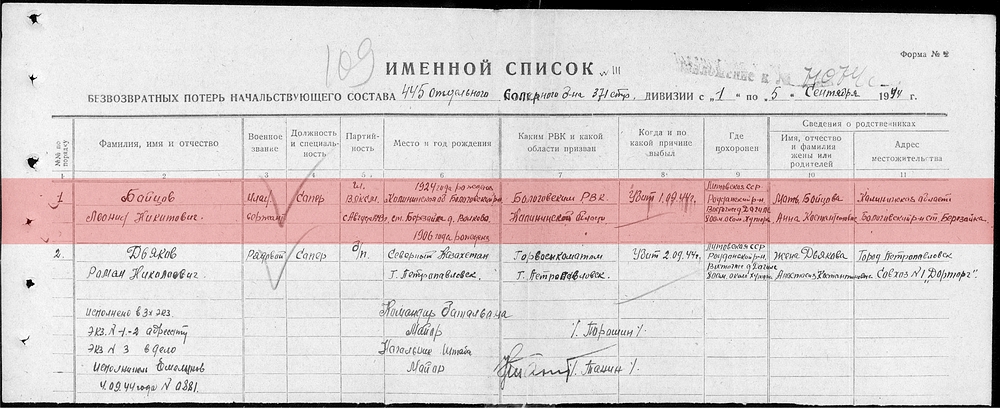 109
Форма № 2
ИМЕННОЙ СПИСОК № III
БЕЗВОЗВРАТНЫХ ПОТЕРЬ НАЧАЛЬСТВУЮЩЕГО СОСТАВА 445 отдельного Саперного Б-на 371 стр. ДИВИЗИИ с „1" по „5" Сентября 1944 г.
№№ по порядку
Фамилия, имя и отчество
Военное звание
Должность и специальность
Партийность
Место и год рождения
Каким РВК и какой области призван
Когда и по какой причине выбыл
Где похоронен
Сведения о родственниках
Имя, отчество и фамилия жены или родителей
Адрес местожительства
1 2 3 4 5 6 7 8 9 10 11
1
Бойцов
Леонид Никитович
Млад.
сержант
Сапер
чл.
ВЛКСМ
1924 года рождения
Калининская обл Бологовский р-н
ст. Березайка д.
Бологовским РВК
Калининской области
Убит 1.09.44г.
Литовская ССР
Мать Бойцова
Анна
Калининская область
Бологовский р-н ст Березайка.
2.
Дьяков
Роман Николаевич
Рядовой
Сапер
б/п.
1906 года рождения
Северный Казахстан
г. Петропавловск.
Горвоенкоматом
г. Петропавловск.
Убит 2.09.44г.
Литовская ССР
Жена Дьякова
Анастасия Константиновна
Город Петропавловск
Совхоз №1 „Дорторг".
Исполнено в 3х экз.
Экз. № 1-2 адресату
Экз № 3 в дело
Исполнитель
4.09.44 года № 0381.
Командир Батальона
Майор /. Порошин /.
Начальник Штаба
Майор /. Танин /.